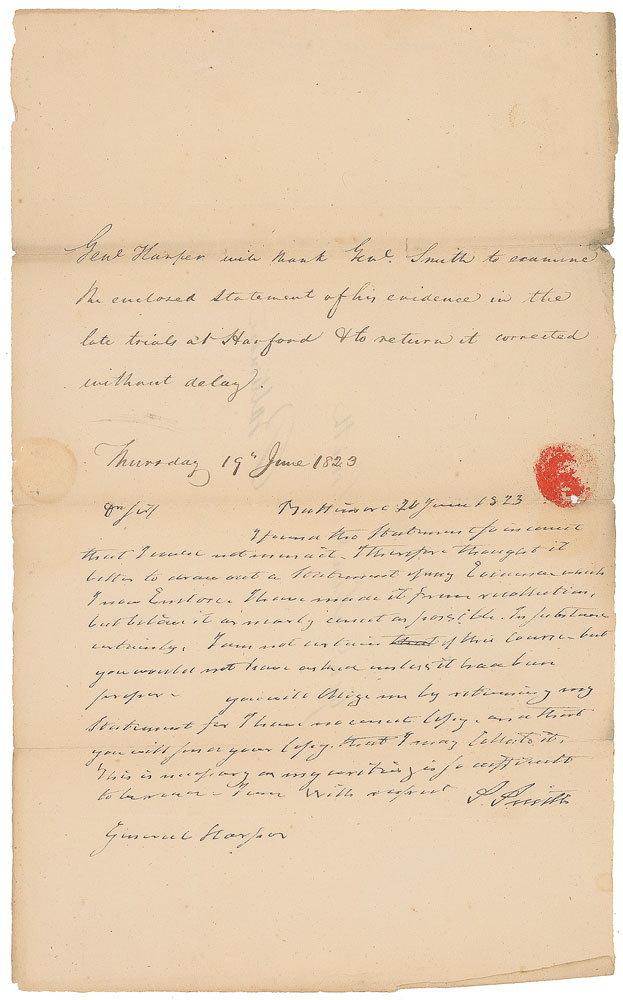 Genl. Harper will thank Genl. Smith to examine
the enclosed statement of his evidence in the
late trials at Harford & to return it corrected
without delay.
Thursday 19th June 1823
Dr Sir Baltimore 20 June 1823
I found the Statement so incorrect
that I could not correct it. I therefore thought it
better to draw out a Statement of my Evidence which
I now Enclose. I have made it from recollection,
but believe it as nearly correct as possible. In substance
certainly. I am not certain that of this course but
you would not have asked unless it had been
proper. you will oblige me by returning my
Statement for I have no correct Copy. and that
you will send your Copy. that I may Collate it.
This is necessary as my writing is so difficult
to be read. I am with respect S Smith
General Harper